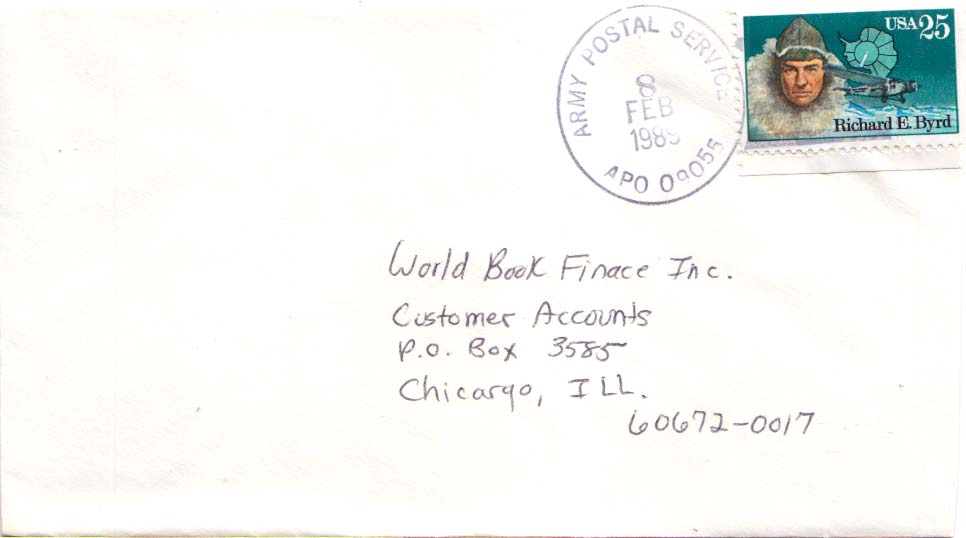 ARMY POSTAL SERVICE
8
FEB
1989
APO 09055
USA 25
Richard E. Byrd
World Book Finace Inc.
Customer Accounts
P.O. Box 3585
Chicargo, ILL.
60672-0017